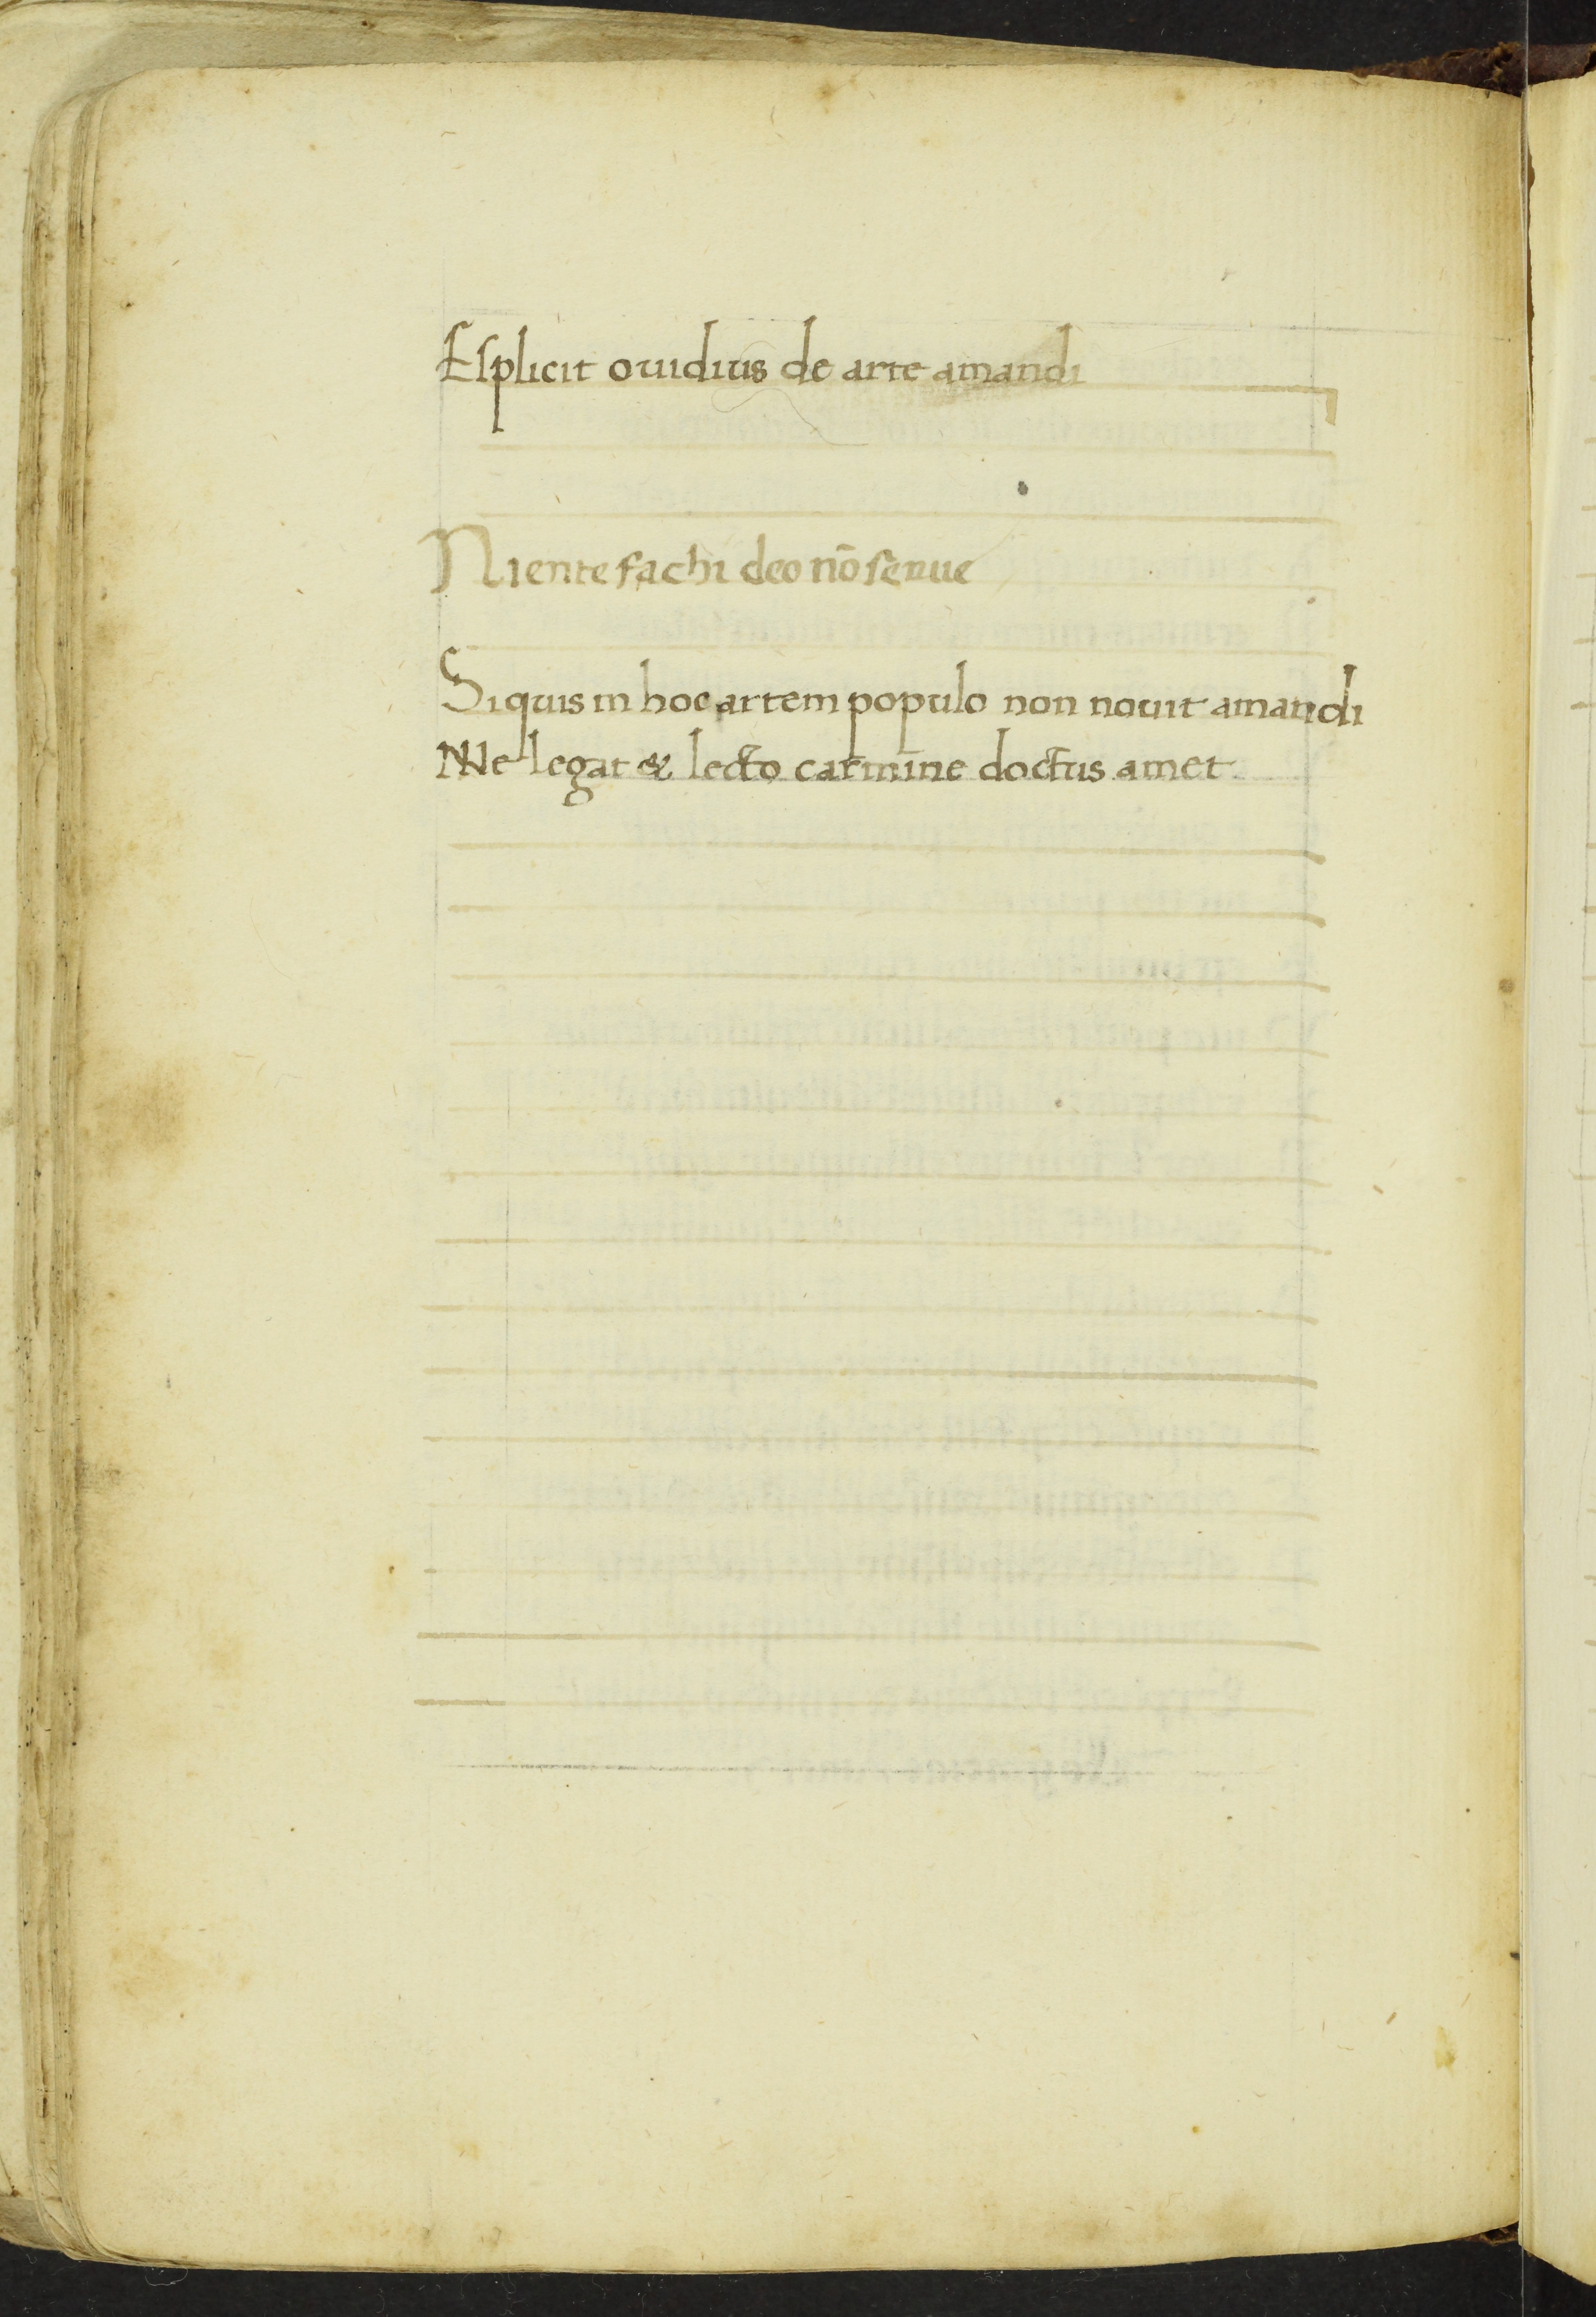 Esplicit ouidius de arte amandi
Niente fa chi deo nō serue
Si quis in hoc artem populo non nouit amandi
Me legat & lecto carmine doctus amet